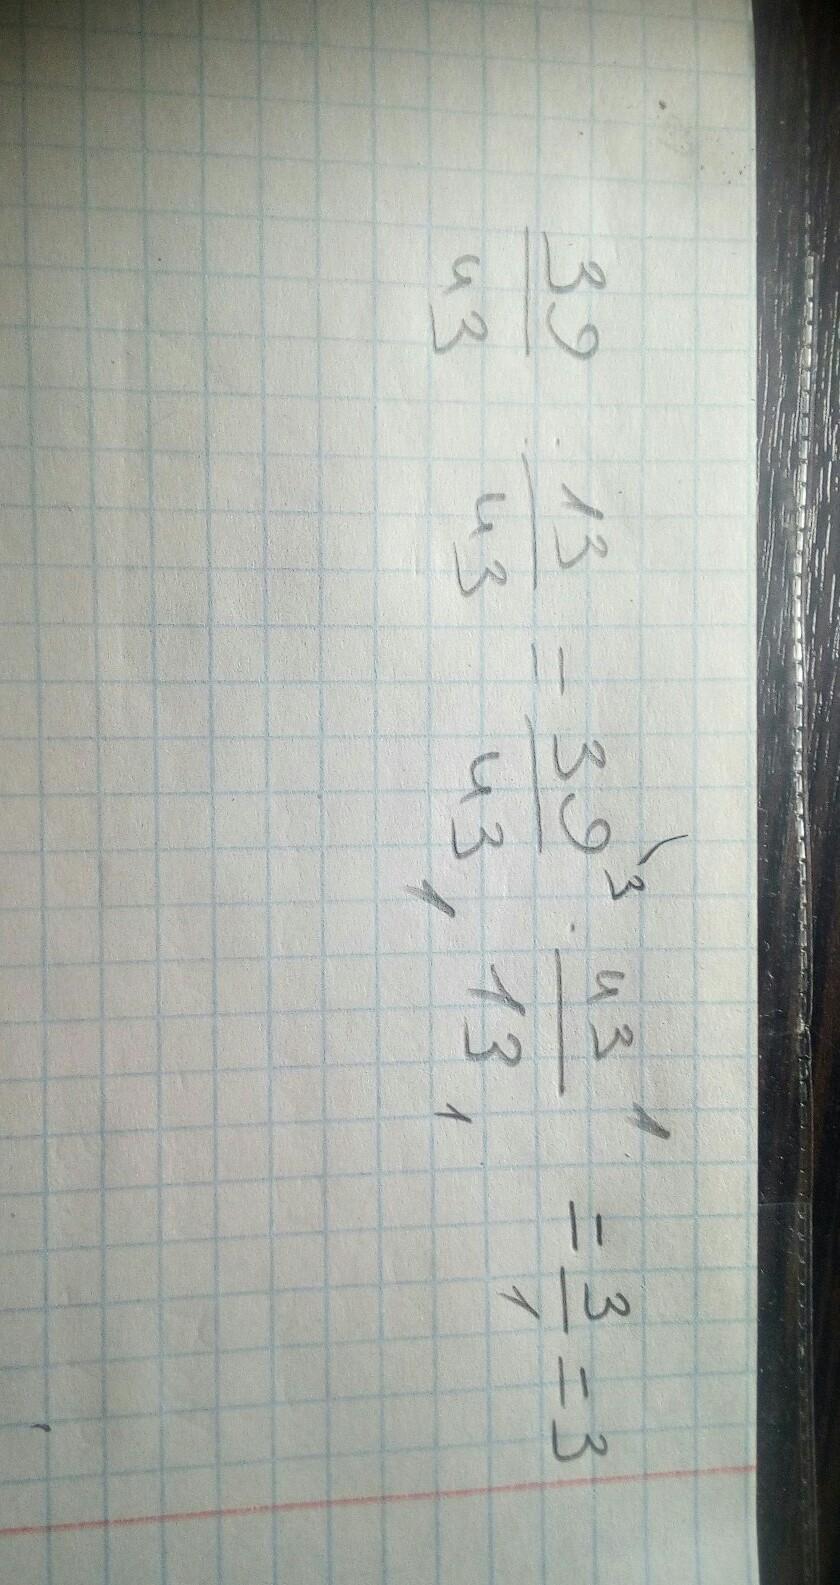 39/43 : 13/43 = 39/43 · 43/13 = 3/1 = 3